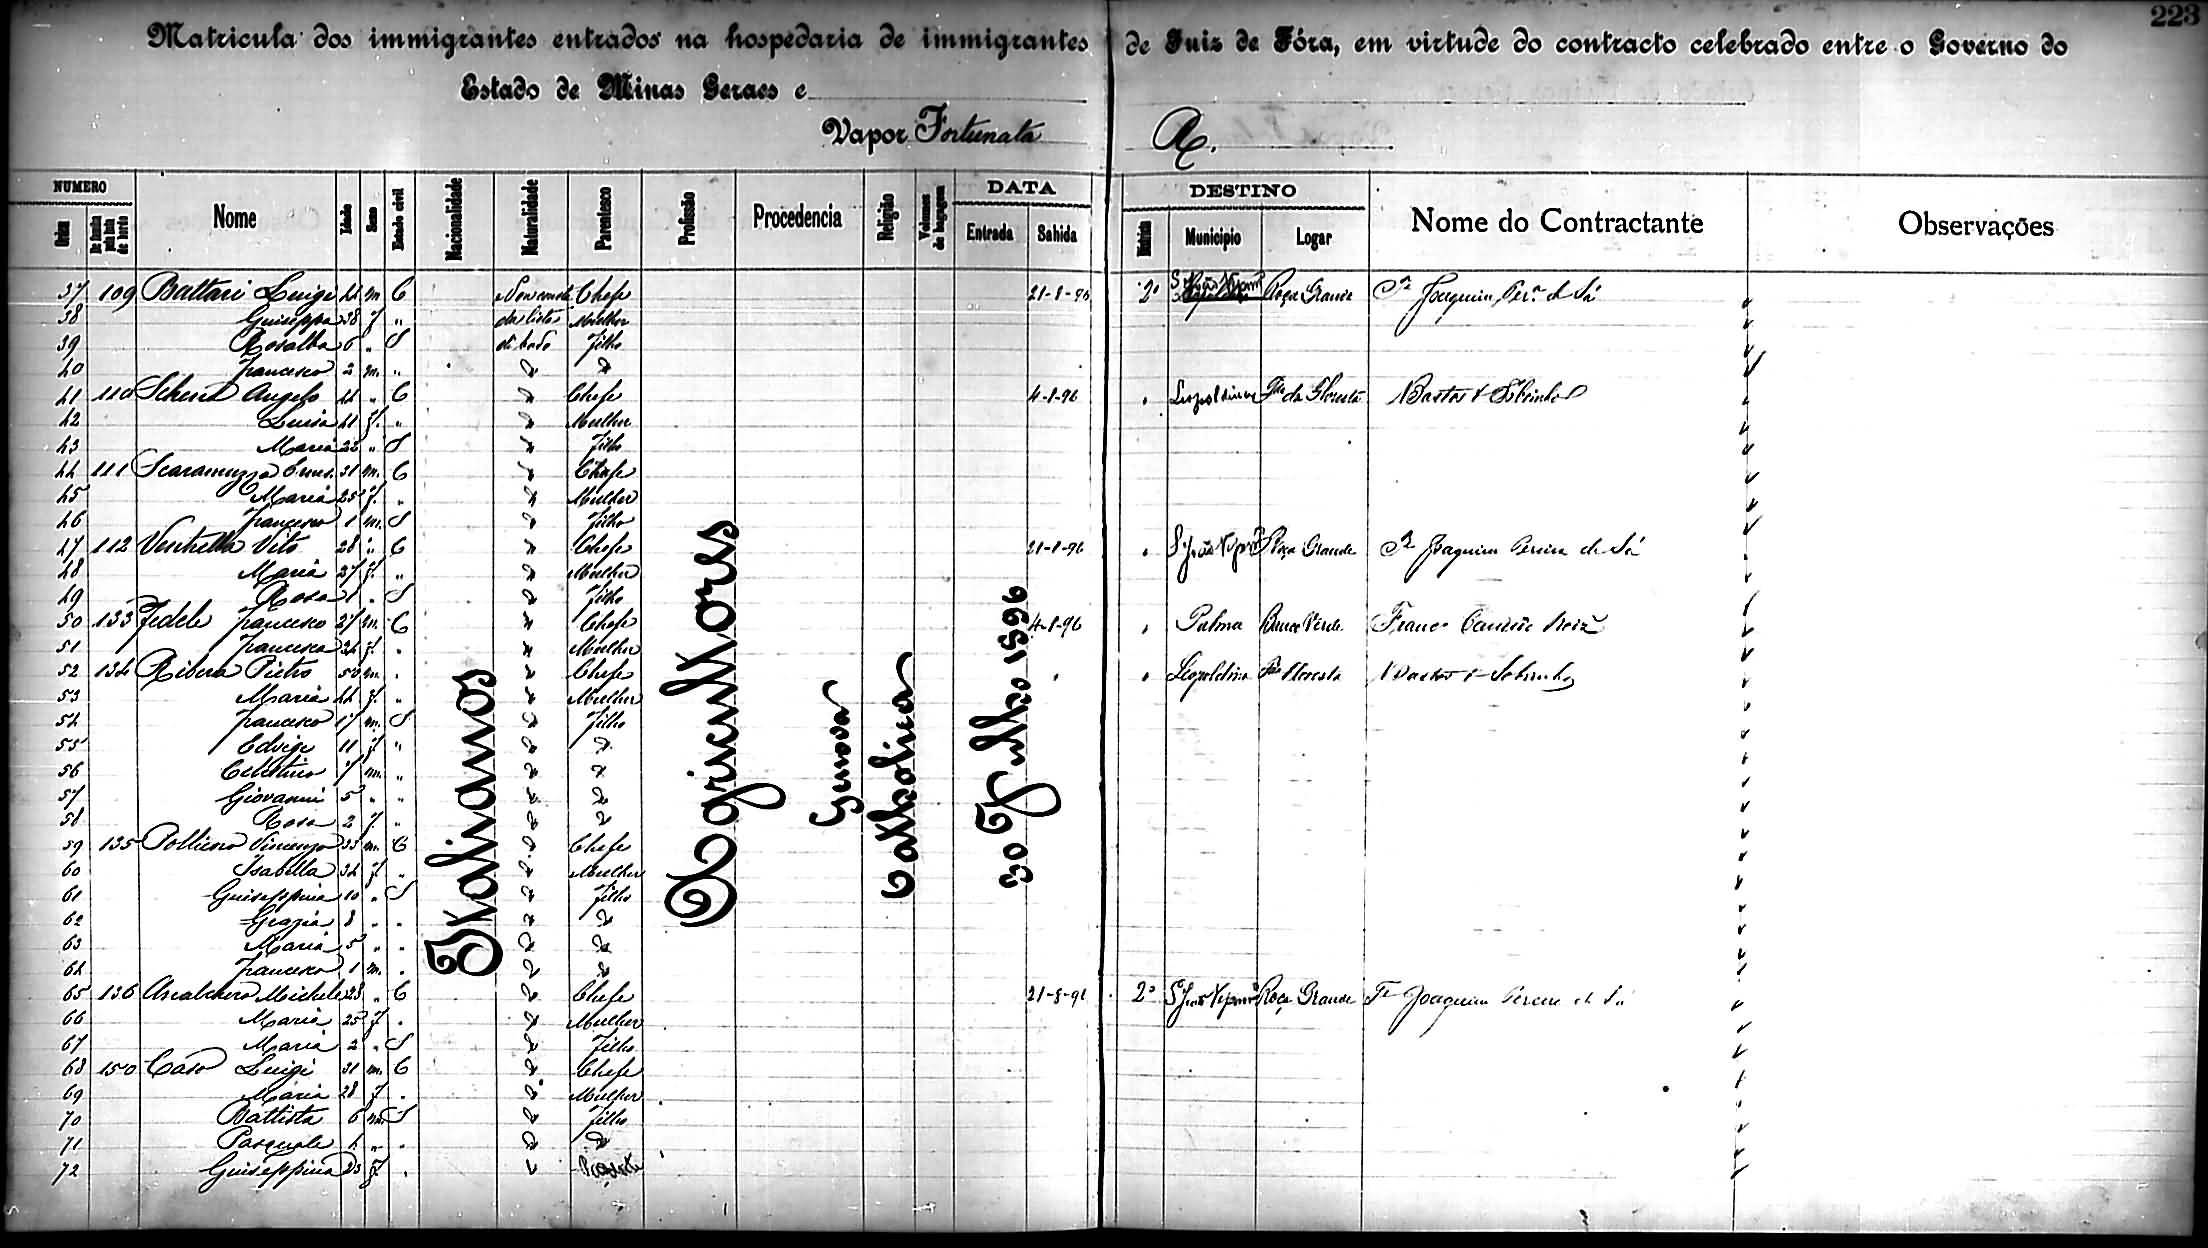 223
Matricula dos immigrantes entrados na hospedaria de immigrantes de Juiz de Fóra, em virtude do contracto celebrado entre o Governo do
Estado de Minas Geraes e
Vapor Fortunata R.
NUMERO DATA DESTINO
Ordem Nome Idade Sexo Estado civil Nacionalidade Naturalidade Parentesco Profissão Procedencia Religião Volumes de bagagem Entrada Sahida Municipio Logar Nome do Contractante Observações
Italianos
Agricultores
Genova
Catholica
30 Julho 1896
37 109 Battari Luigi 44 m C Chefe 21-8-96 2º Roça Grande Joaquim Perª de Sá
38 Guiseppa 38 f " da lista Mulher
39 Rosalba 6 " S de bordo Filho
40 Francesco 2 m. "
41 110 Angelo 44 " C Chefe 4-8-96 Leopoldina da Floresta Bastos & Sobrinho
42 Luisa 41 f. " Mulher
43 Maria 22 " S Filho
44 111 Scaramuzza 31 m. C Chefe
45 Maria 25 f. " Mulher
46 Francesco 1 m. S Filho
47 112 Vito 28 " C Chefe 21-8-96 Roça Grande Joaquim Pereira de Sá
48 Maria 27 f. " Mulher
49 Rosa 1 " S Filho
50 133 Fedele Francesco 27 m. C Chefe 4-8-96 Palma
51 Francesca 24 f. " Mulher
52 134 Ribera Pietro 50 m. " Chefe " Leopoldina Floresta Bastos & Sobrinho
53 Maria 44 f. " Mulher
54 Francesco 17 m. S Filho
55 Edvige 11 f "
56 Celestino 7 m. "
57 Giovanni 5 " "
58 Rosa 2 f "
59 135 Vincenzo 33 m. C Chefe
60 Isabella 34 f " Mulher
61 Guiseppina 10 " S Filho
62 Grazia 8 " "
63 Maria 5 " "
64 Francesco 1 m. "
65 136 Michele 28 " C Chefe 21-8-96 2º Roça Grande Joaquim Pereira de Sá
66 Maria 25 f. " Mulher
67 Maria 2 " S Filho
68 150 Caso Luigi 31 m. C Chefe
69 Maria 28 f. " Mulher
70 Battista 6 m. S Filho
71 Pasquale 4 " "
72 Guiseppina f. "